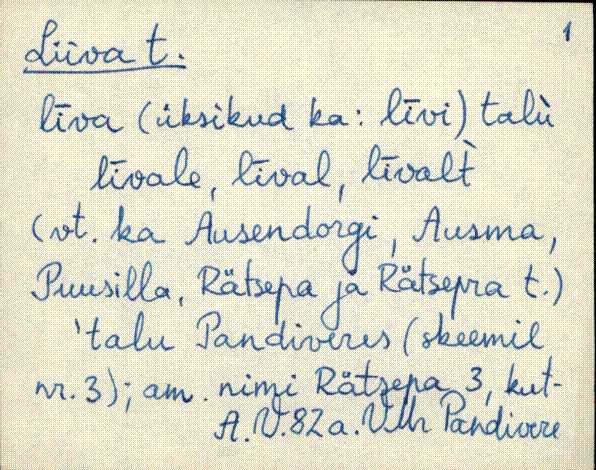 1
Liiva t.
līva (üksikud ka: līvi) talù
līvale, līval, līvalt̀
(vt. ka Ausendorgi, Ausma,
Puusilla, Rätsepa ja Rätsepra t.)
'talu Pandiveres (skeemil
nr. 3); am. nimi Rätsepa 3, kut-
A. V. 82 a. VMr Pandivere